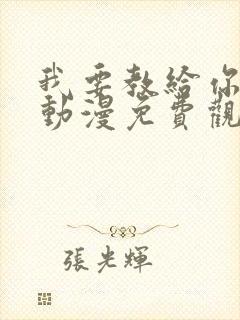 我要教給你
動漫免費觀
張光輝